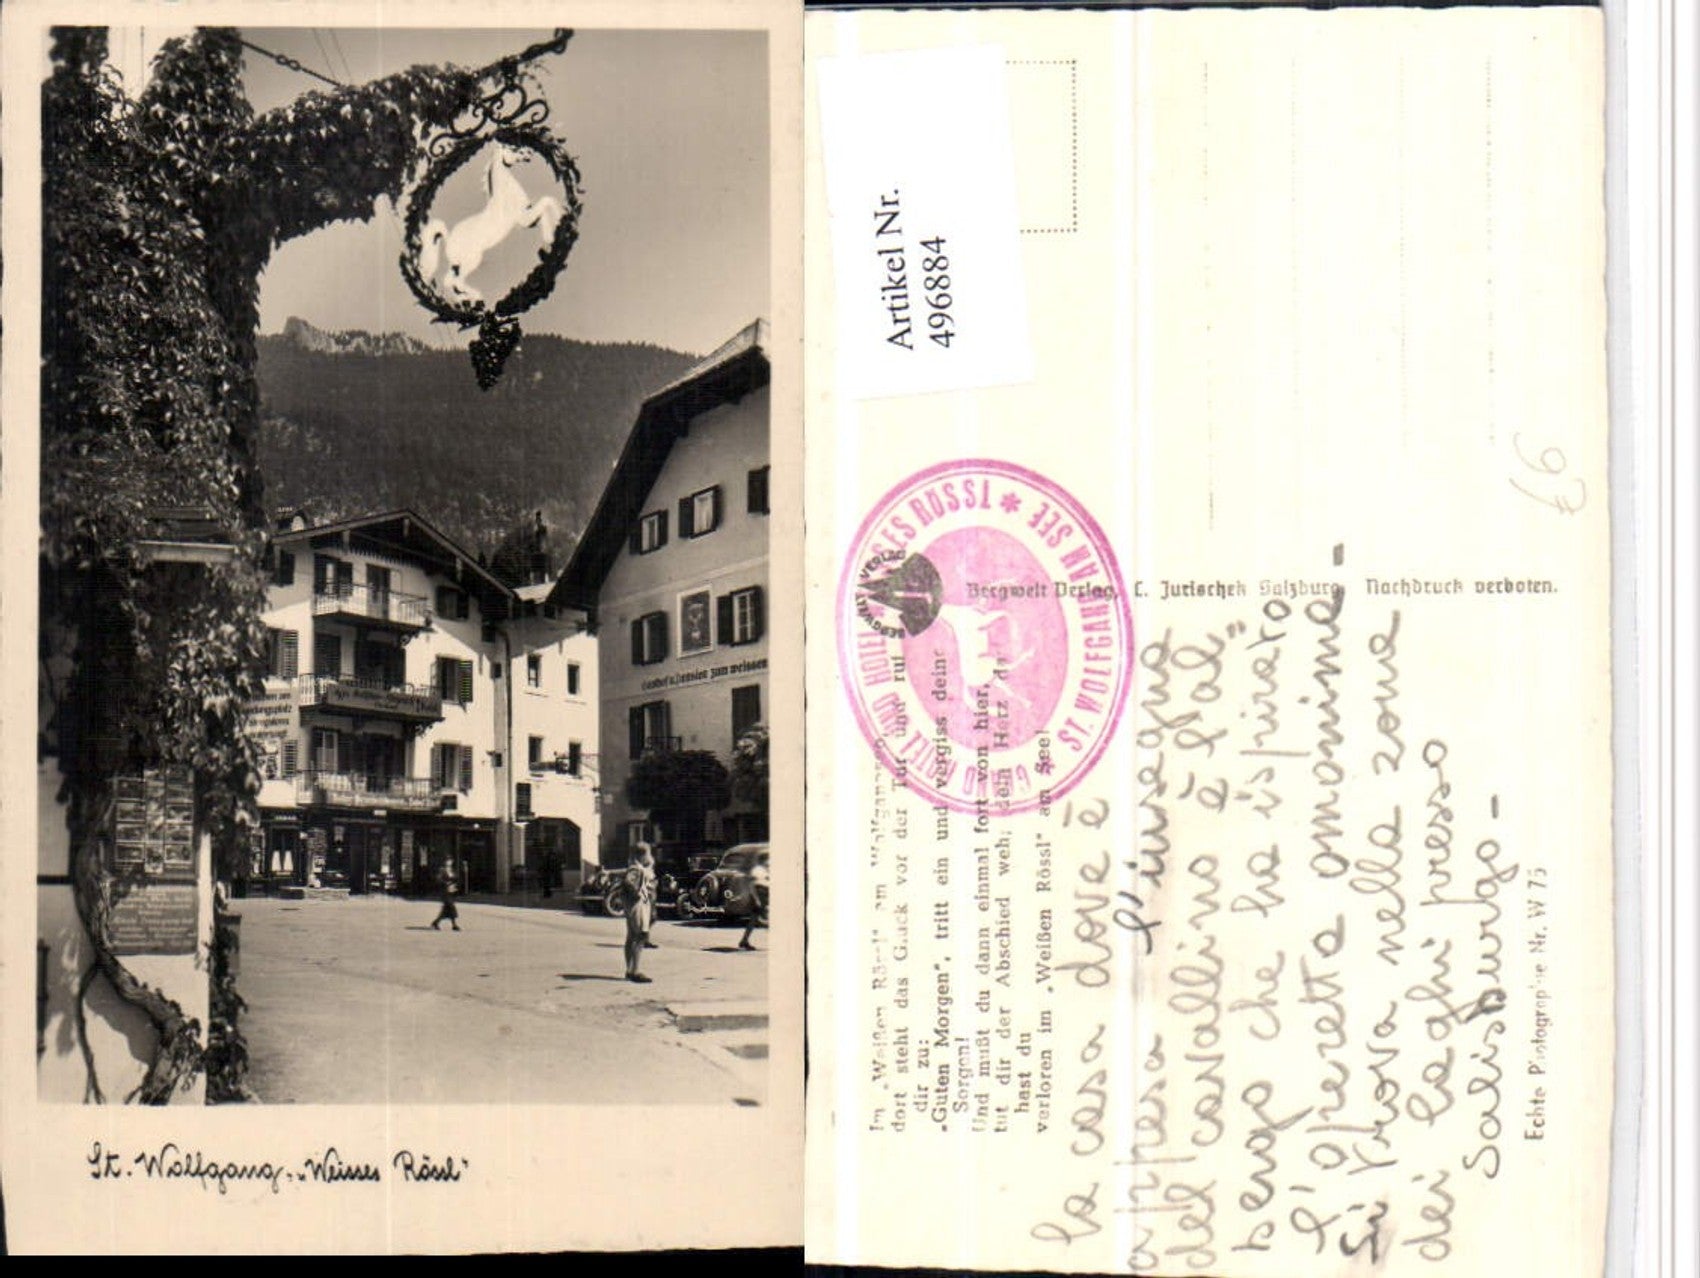 St. Wolfgang, „Weisses Rössl"
Gasthof u. Pension zum weissen
Artikel Nr.
496884
GRAND HOTEL WEISSES RÖSSL * ST. WOLFGANG AM SEE *
BERGWELT VERLAG
Bergwelt Verlag, C. Jurischek Salzburg Nachdruck verboten.
Im „Weißen Rössl" am Wolfgangsee,
dort steht das Glück vor der Tür und ruft
dir zu:
„Guten Morgen", tritt ein und vergiss deine
Sorgen!
Und mußt du dann einmal fort von hier,
tut dir der Abschied weh; dein Herz das
hast du
verloren im „Weißen Rössl" am See!
la casa dove è
appesa l'insegna
del cavallino è l'al"
bergo che ha ispirato
l'opretta omonima -
si trova nella zona
dei laghi presso
Salisburgo -
Echte Photographie Nr. W 75
€6